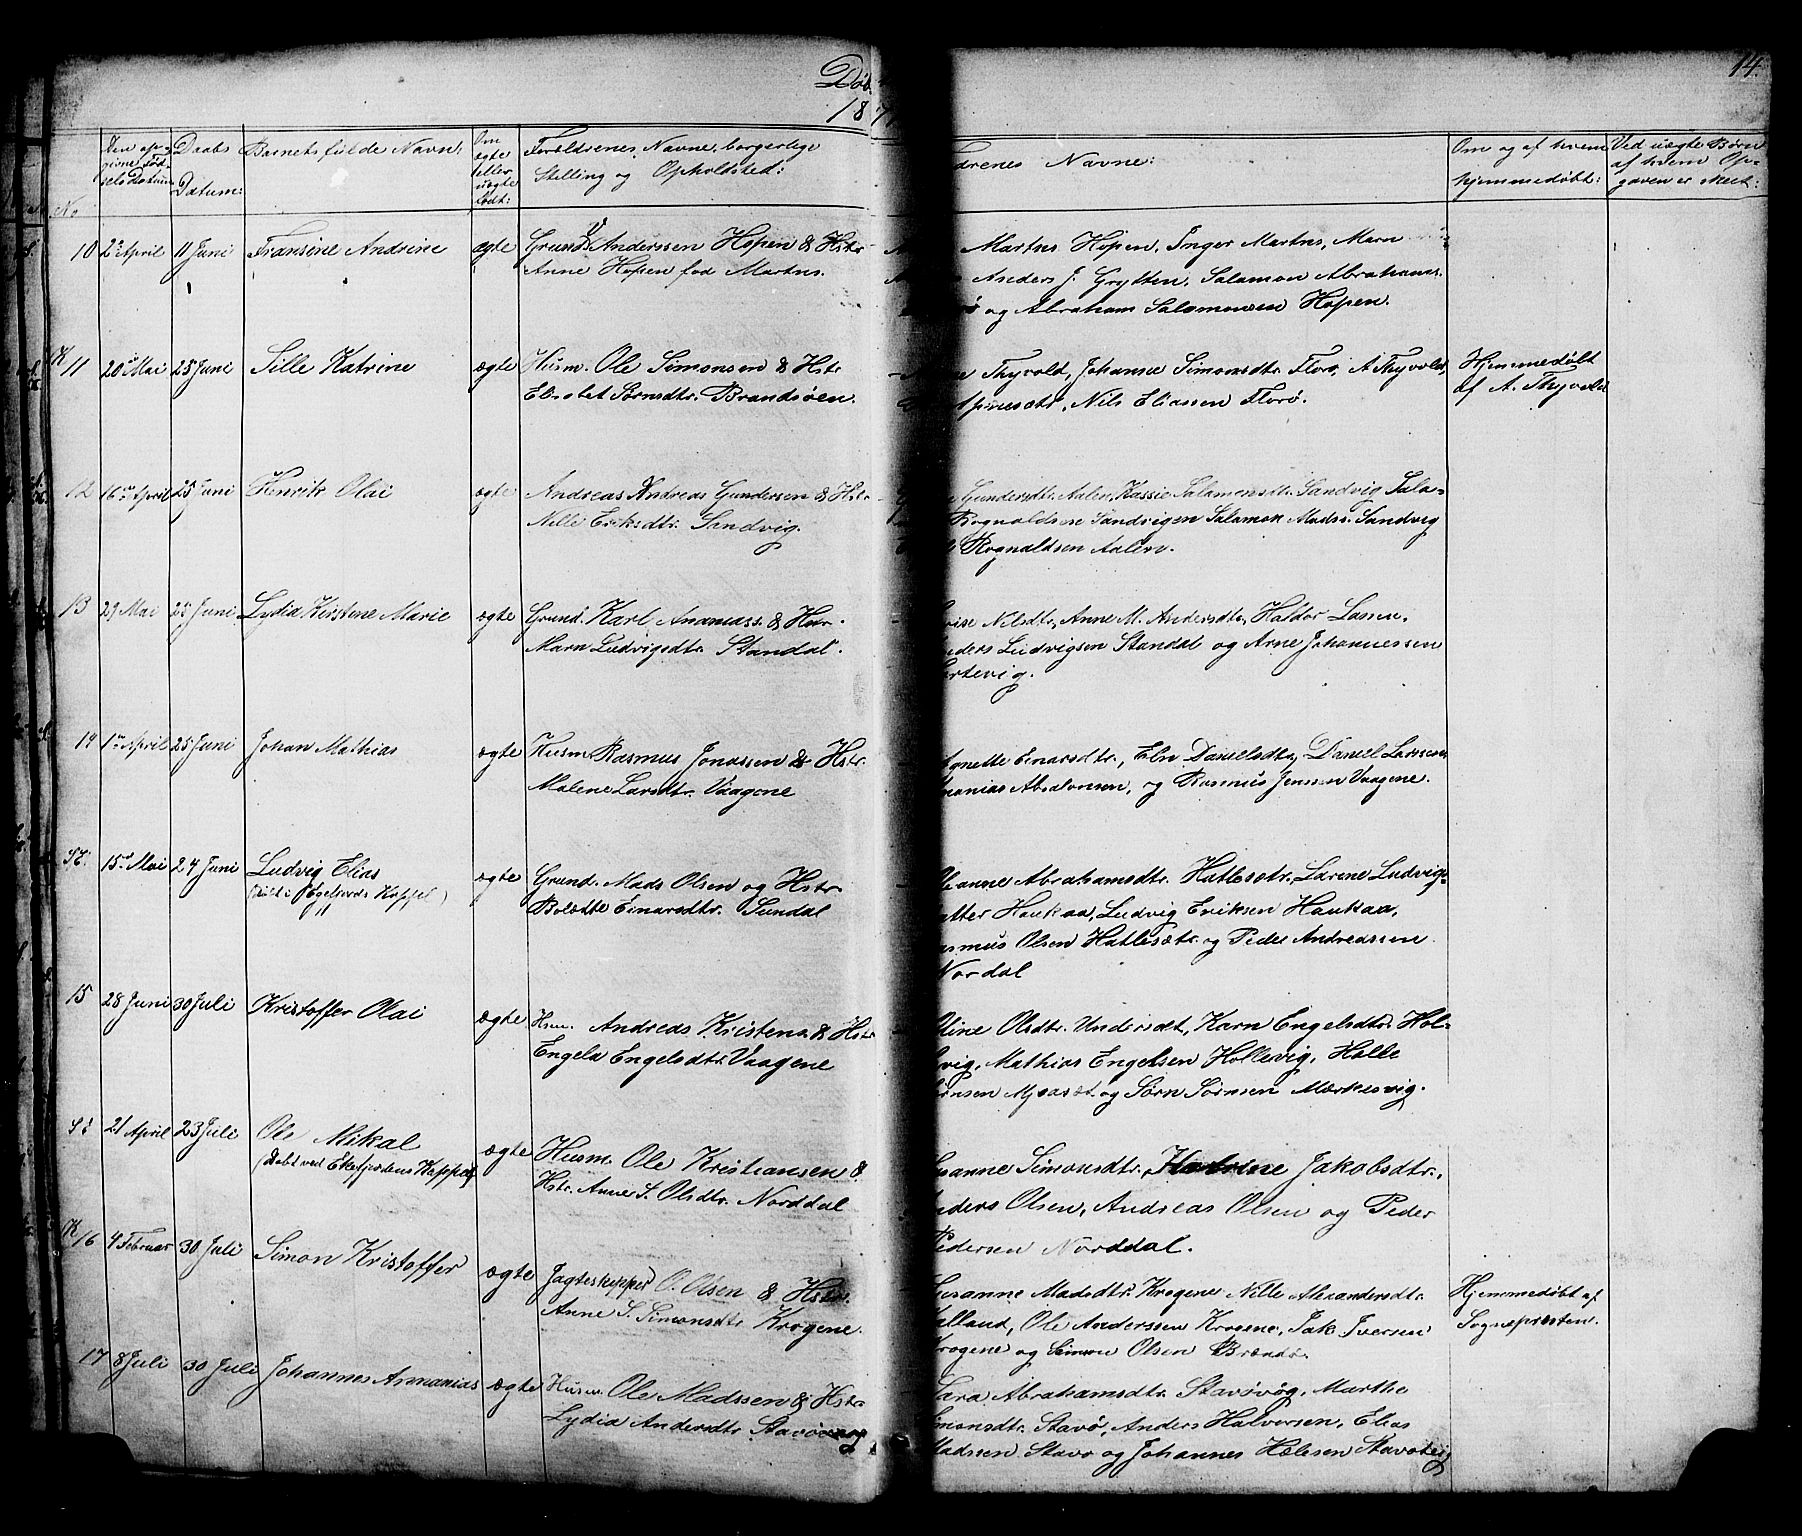 14.
Døb
187
No
Den op-
givne Fød-
sels Datum
Daabs
Datum:
Barnets fulde Navn:
Om
ægte
eller
uægte
født:
Forældrenes Navne, borgerlige
Stilling og Opholdsted:
drenes Navne:
Om og af hvem
hjemmedøbt:
Ved uægte Børn
af hvem Op-
gaven er Meet:
10 2 April 11 Juni Fransine Andrine ægte Grund. Anderssen Hopen & Hstr
Anne Hopen fød Martns.
Martns Hopen, Inger Martns, Marn
Anders J. Grytten, Salamon Abrahams.
og Abraham Salomonsen Hopen.
K 11 20 Mai 25 Juni Sille Katrine ægte Husm. Ole Simonsen & Hstr
Elisabet Sørnsdtr. Brandsøen.
Thyvold, Johanne Simonsdtr. Florø, A Thyvold,
Nils Eliassen Florø.
Hjemmedøbt
af A. Thyvold
12 16 April 25 Juni Henrik Olai ægte Andreas Andreas Gundersen & Hstr
Nille Eriksdtr. Sandvig.
Gundersdtr. Aalen, Kassie Salamonsdtr. Sandvig Sala-
Rognaldsen Sandvigen Salamon Mads. Sandvig
Rognaldsen Aalen.
13 29 Mai 25 Juni Lydia Kirstine Marie ægte Grund. Karl Ananiass. & Hstr.
Marn Ludvigsdtr. Standal.
Nilsdtr, Anne M. Andersdtr, Haldor Lassen,
nders Ludvigsen Standal og Arne Johannessen
rtevig.
14 1 April 25 Juni Johan Mathias ægte Husm Rasmus Jonassen & Hstr.
Malene Larsdtr. Vaagene
Agnette Einarsdtr., Eln Danielsdtr, Daniel Larssen
nanias Absalonsen, og Rasmus Jensen Vaagene.
St. 15 Mai 24 Juni Ludvig Elias ægte Grund. Mads Olsen og Hstr
Bolette Einarsdtr. Sundal
leanne Abrahamsdtr. Hatlesetr, Larene Ludvigs-
atter Haukaa, Ludvig Eriksen Haukaa,
asmus Olsen Hatlesætr. og Peder Andreassen
Nordal
15 28 Juni 30 Juli Kristoffer Olai ægte Hsm. Andreas Kristens. & Hstr
Engela Engelsdtr. Vaagene
line Olsdtr. Undersæt, Karn Engelsdtr. Hol-
vig, Mathias Engelsen Hollevig, Holle
og Sørn Sørnsen Mærkesvig.
St 21 April 23 Juli Ole Mikal
(Døbt ved Ekefjordens Kappel)
ægte Husm. Ole Kristiansen &
Hstr. Anne S. Olsdtr. Norddal
usanne Simonsdtr, Katrine Jakobsdtr.,
nders Olsen, Andreas Olsen og Peder
Pedersen Norddal.
K 16 4 Februar 30 Juli Simon Kristoffer ægte Jagteskipper O. Olsen & Hstr.
Anne S. Simonsdtr Krogene.
usanne Madsdtr. Krogene Nille Alexandersdtr.
alland, Ole Anderssen Krogene, Jak Iversen
rogene og Simon Olsen Brandsø.
Hjemmedøbt af
Sognepresten.
17 8 Juli 30 Juli Johannes Annanias ægte Husm. Ole Madssen & Hstr
Lydia Andersdtr Stavøvæg
Sara Abrahamsdtr. Stavøvåg, Marthe
imonsdtr. Stavø, Anders Halversen, Elias
Madssen Stavø og Johannes Helesen Stavøteig